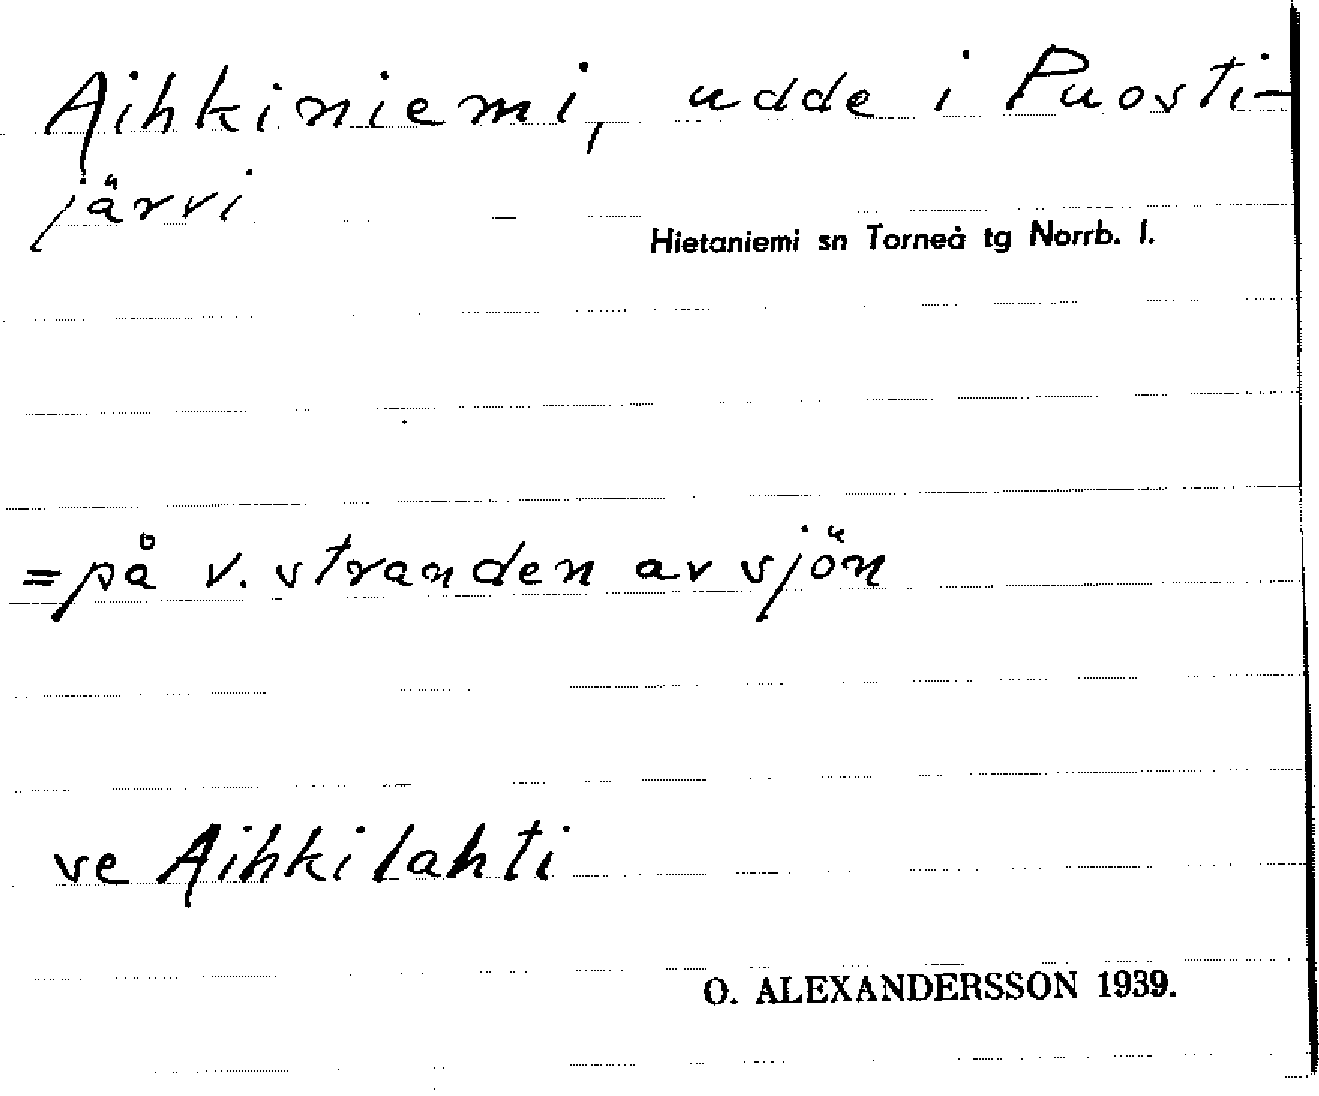 Aihkiniemi, udde i Puosti-
järvi
Hietaniemi sn Torneå tg Norrb. l.
= på v. stranden av sjön
ve Aihkilahti
O. ALEXANDERSSON 1939.